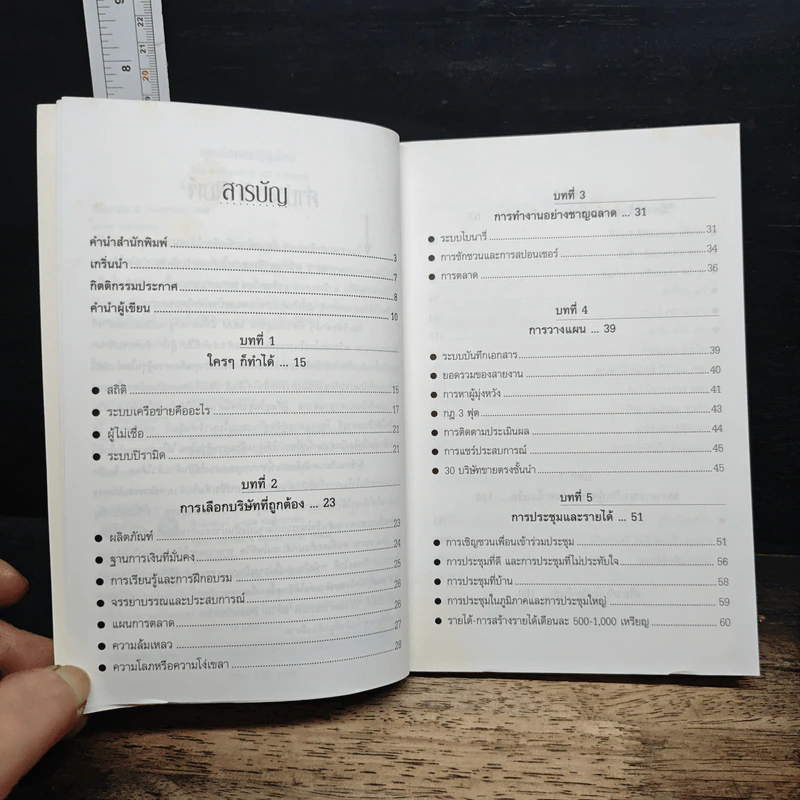 สารบัญ
คำนำสำนักพิมพ์ 3
เกริ่นนำ 7
กิตติกรรมประกาศ 8
คำนำผู้เขียน 10
บทที่ 1
ใครๆ ก็ทำได้ ... 15
● สถิติ 15
● ระบบเครือข่ายคืออะไร 17
● ผู้ไม่เชื่อ 21
● ระบบปิรามิด 21
บทที่ 2
การเลือกบริษัทที่ถูกต้อง ... 23
● ผลิตภัณฑ์ 23
● ฐานการเงินที่มั่นคง 24
● การเรียนรู้และการฝึกอบรม 25
● จรรยาบรรณและประสบการณ์ 26
● แผนการตลาด 26
● ความล้มเหลว 27
● ความโลภหรือความโง่เขลา 28
บทที่ 3
การทำงานอย่างชาญฉลาด ... 31
● ระบบไบนารี่ 31
● การชักชวนและการสปอนเซอร์ 34
● การตลาด 36
บทที่ 4
การวางแผน ... 39
● ระบบบันทึกเอกสาร 39
● ยอดรวมของสายงาน 40
● การหาผู้มุ่งหวัง 41
● กฎ 3 ฟุต 43
● การติดตามประเมินผล 44
● การแชร์ประสบการณ์ 45
● 30 บริษัทขายตรงชั้นนำ 45
บทที่ 5
การประชุมและรายได้ ... 51
● การเชิญชวนเพื่อนเข้าร่วมประชุม 51
● การประชุมที่ดี และการประชุมที่ไม่ประทับใจ 56
● การประชุมที่บ้าน 58
● การประชุมในภูมิภาคและการประชุมใหญ่ 59
● รายได้-การสร้างรายได้เดือนละ 500-1,000 เหรียญ 60
8
22
21
20
19